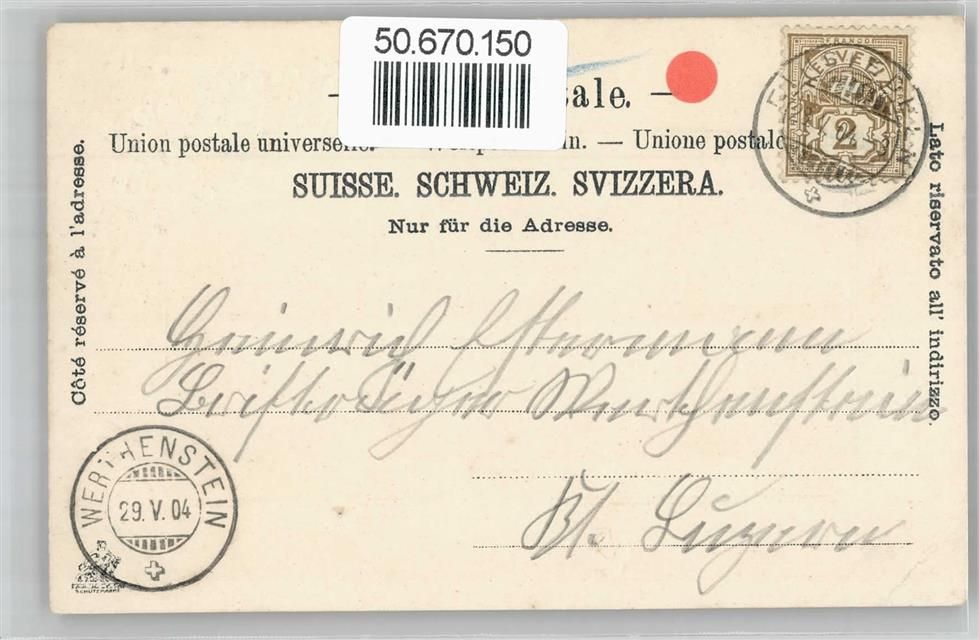 50.670.150
ale. —
Union postale universelle. — in. — Unione postale
SUISSE. SCHWEIZ. SVIZZERA.
Nur für die Adresse.
Côté réservé à l'adresse.
Lato riservato all' indirizzo.
FRANCO
HELVETIA
2
Heinrich Estermann
Briefträger Werthenstein
Kt. Luzern
WERTHENSTEIN
29. V. 04
SCHUTZMARKE